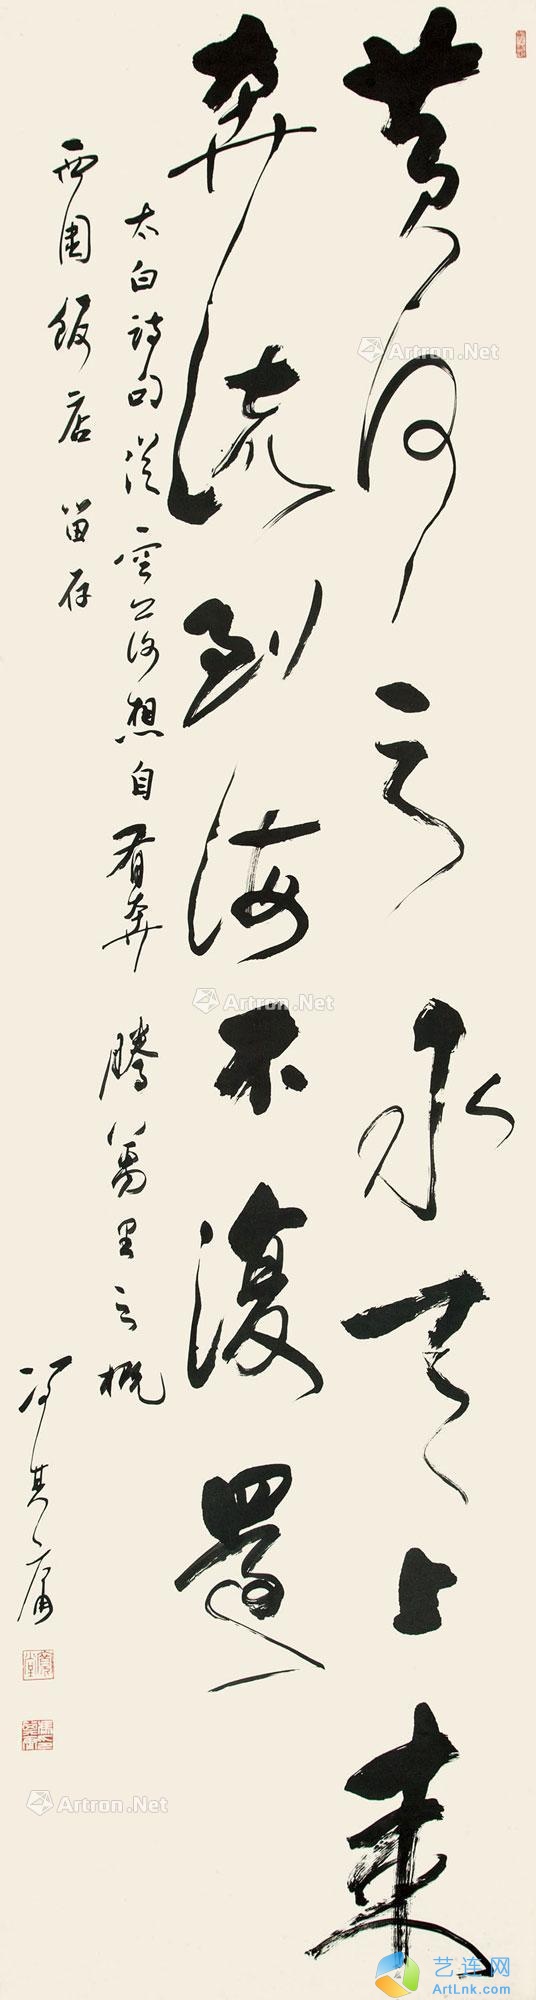 黄河之水天上来
奔流到海不復還
太白詩句 想自有奔騰萬里之概
西園飯店留存
馮其庸
Artron.Net
Artron.Net
Artron.Net
Artron.Net
艺连网
ArtLnk.com